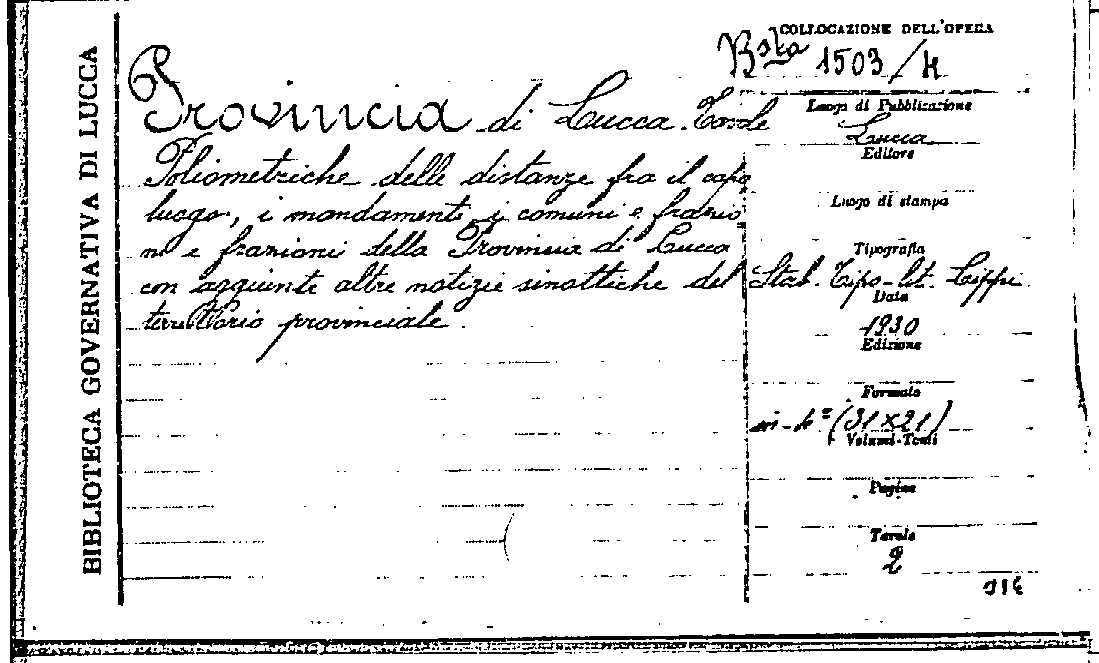 BIBLIOTECA GOVERNATIVA DI LUCCA
COLLOCAZIONE DELL'OPERA
Bsta 1503/4
Provincia di Lucca. Tavole
Poliometriche delle distanze fra il capo
luogo, i mandamenti, i comuni e frazio
ni e frazioni della Provincia di Lucca
con aggiunte altre notizie sinottiche del
territorio provinciale.
Luogo di Pubblicazione
Lucca
Editore
Luogo di stampa
Tipografia
Stab. Tipo-lit.
Data
1930
Edizione
Formato
in-4º (31x21)
Volumi-Tomi
Pagine
Tavole
2